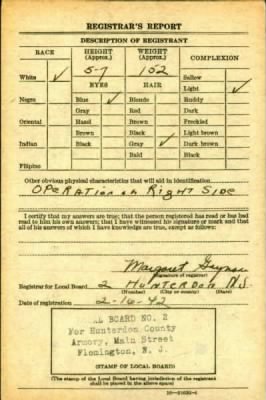 REGISTRAR'S REPORT
DESCRIPTION OF REGISTRANT
RACE HEIGHT (Approx.) WEIGHT (Approx.) COMPLEXION
White ✓ 5-7 152 Sallow
EYES HAIR Light ✓
Negro Blue ✓ Blonde Ruddy
Gray Red Dark
Oriental Hazel Brown Freckled
Brown Black Light brown
Indian Black Gray ✓ Dark brown
Bald Black
Filipino
Other obvious physical characteristics that will aid in identification
OPERATION on RIGHT SIDE
I certify that my answers are true; that the person registered has read or has had
read to him his own answers; that I have witnessed his signature or mark and that
all of his answers of which I have knowledge are true, except as follows:
Margaret
(Signature of registrar)
Registrar for Local Board 2 HUNTERDON N.J.
(Number) (City or county) (State)
Date of registration 2-16-42
BOARD NO. 2
For Hunterdon County
Armory, Main Street
Flemington, N. J.
(STAMP OF LOCAL BOARD)
(The stamp of the Local Board having jurisdiction of the registrant
shall be placed in the above space)